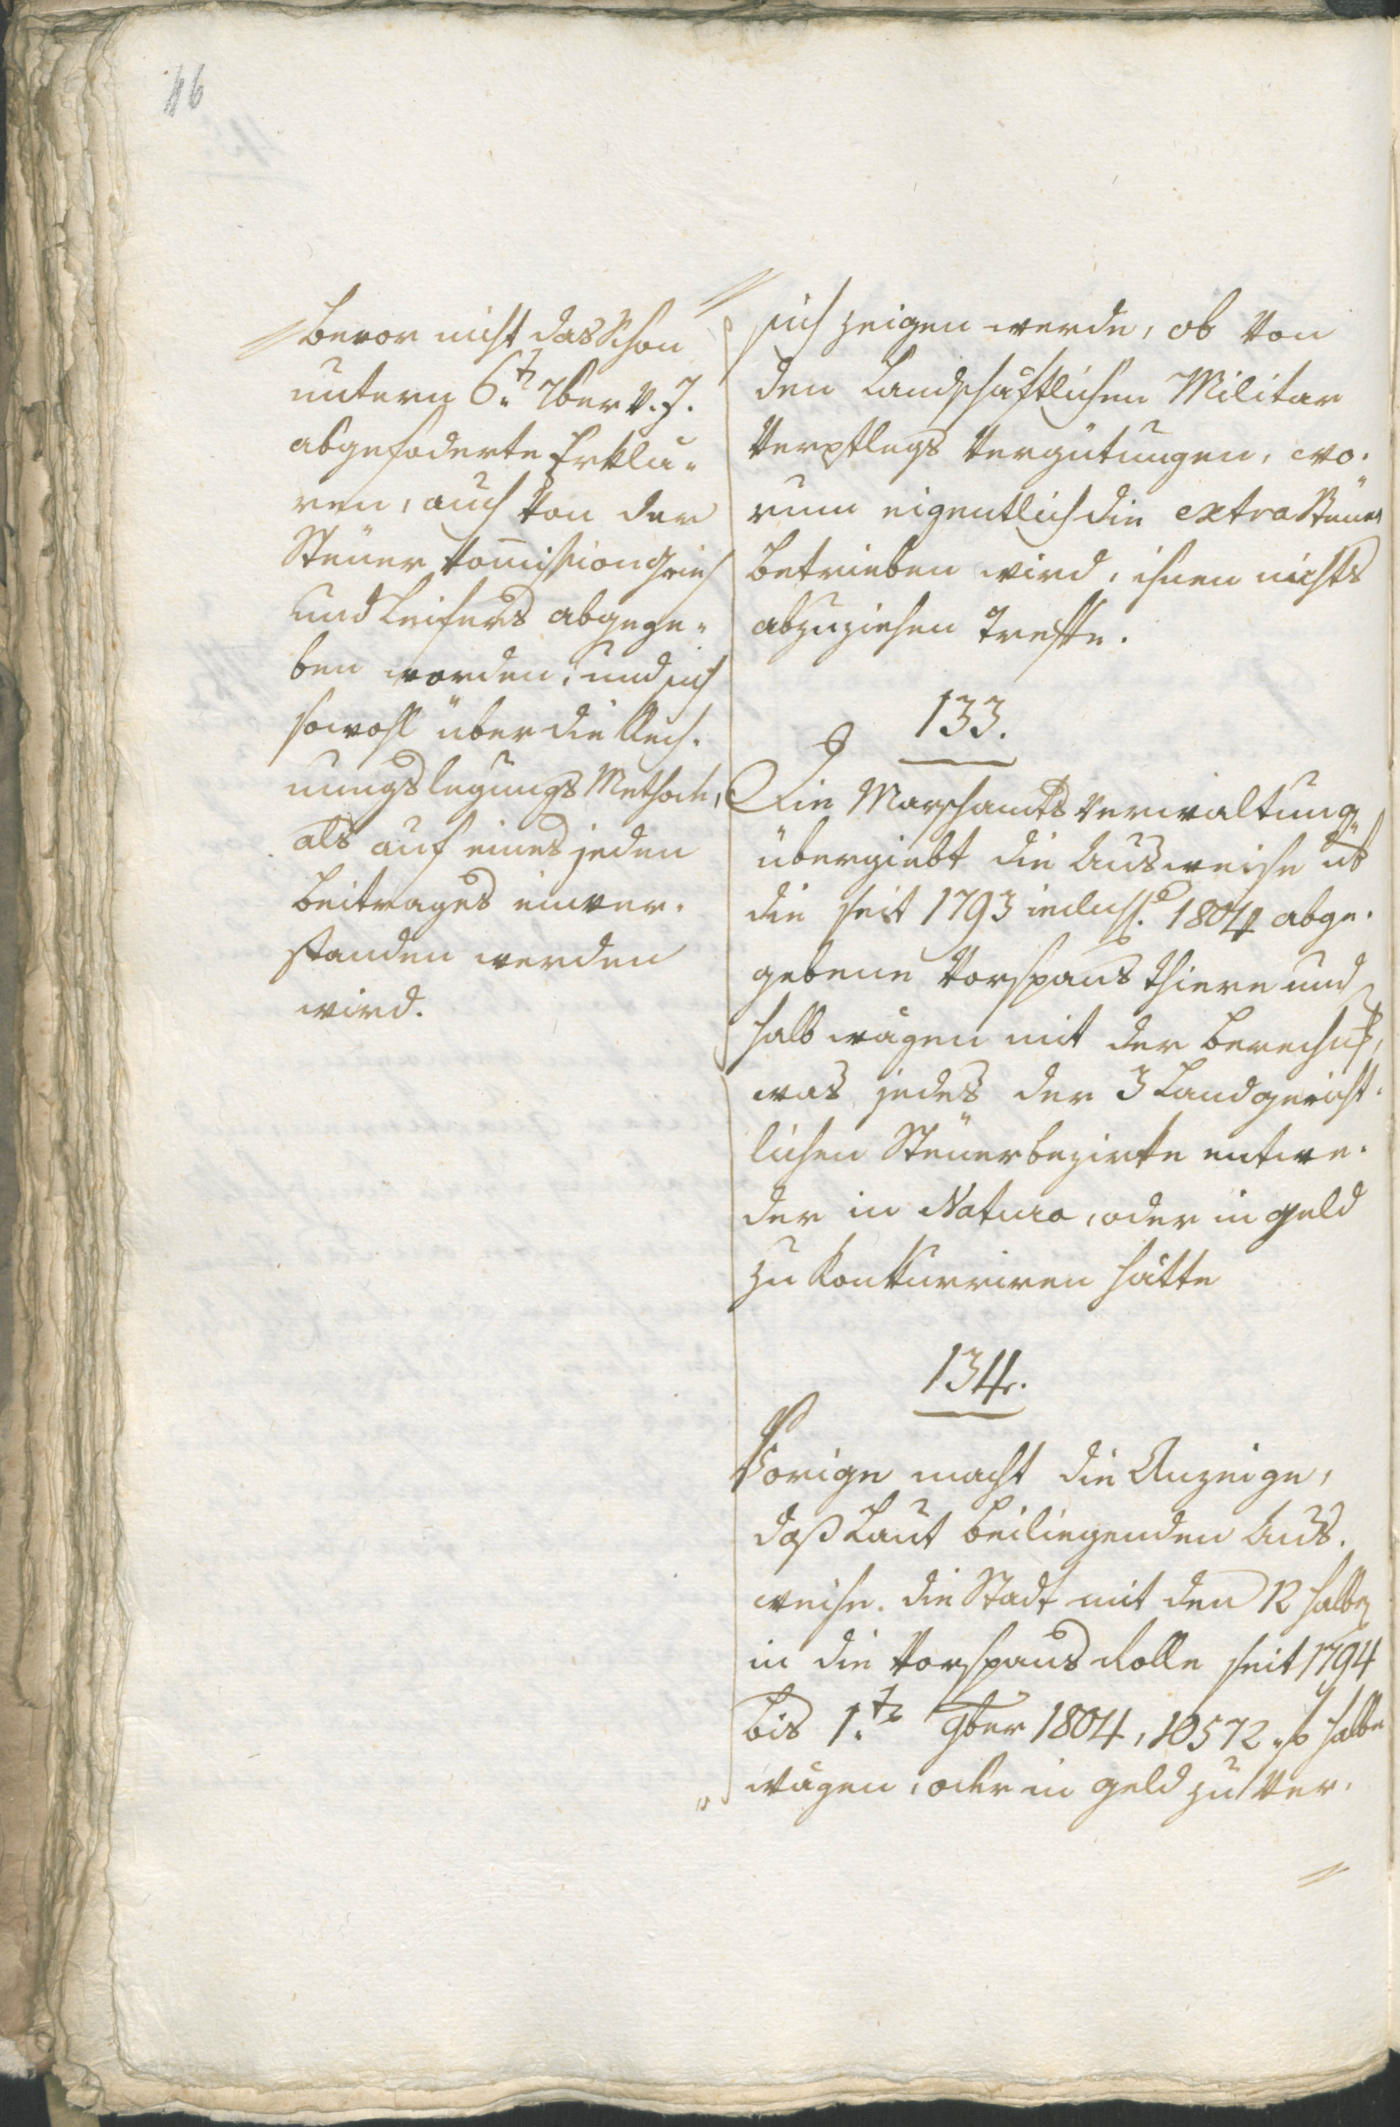 46
bevor nicht das schon
untern 6.t 7ber v. J.
abgefoderte Erklä„
ren, auch von der
Steuer Kom̅ission Gries
und Leifers abgege„
ben worden, und sich
sowohl über die Rech„
nungslegungs Methode,
als auf eines jeden
Beitrages einver„
standen werden
wird.
sich zeigen werde, ob von
den Landschäftlichen Militar
Verpflegs Vergütungen, wo„
rum eigentlich die extra Steuer
betrieben wird, ihnen nichts
abzuziehen Treffe.
133.
Die Marschamts Verwaltung
übergiebt die Ausweise üb
die seit 1793 1804 abge„
gebene Vorspans thiere und
halb wägen mit der Berechng,
was jedes der 3 Landgericht„
lichen Steuerbezirke entwe„
der in Natura, oder in Geld
zu konkurriren hätte
134.
Vorige macht die Anzeige,
daß Laut beiliegenden Aus„
weise. die Stadt mit den 12 halbe
in die Vorspans Rolle seit 1794
bis 1.t 9ber 1804, 10572 halbe
wägen, oder in Geld zu Ver„